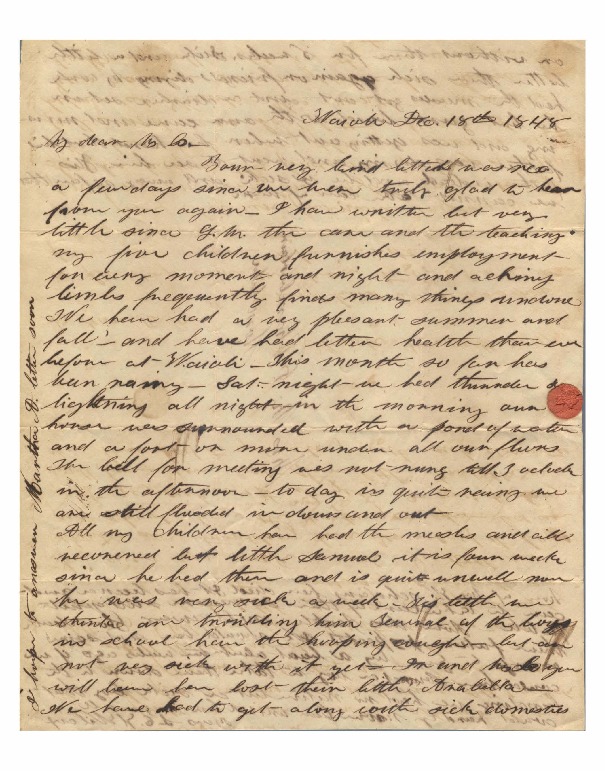 Waioli Dec. 18th 1848
My dear Mr C.
Your very kind letter was rec
a few days since we were truly glad to hear
from you again - I have written but very
little since G.M. the care and the teaching
my five children furnishes employment
for every moment and night and aching
limbs frequently finds many things undone
We have had a very pleasant summer and
fall - and have had better health than ever
before at Waioli - This month so far has
been rainy - Sat. night we had thunder &
lightning all night - in the morning our
house was surrounded with a pond of water
and a foot or more under all our floors
The bell for meeting was not rung till 3 oclock
in the afternoon - to day is quite rainy we
are still flooded in doors and out
All my children have had the measles and all
recovered but little Samuel it is four weeks
since he had them and is quite unwell now
he was very sick a week - His teeth we
think are troubling him Several of the boys
in school have the hooping cough - but are
not very sick with it yet - you
will have lost their little Arabella
We have had to get along with sick domestics
I hope to answer Martha D. letter soon